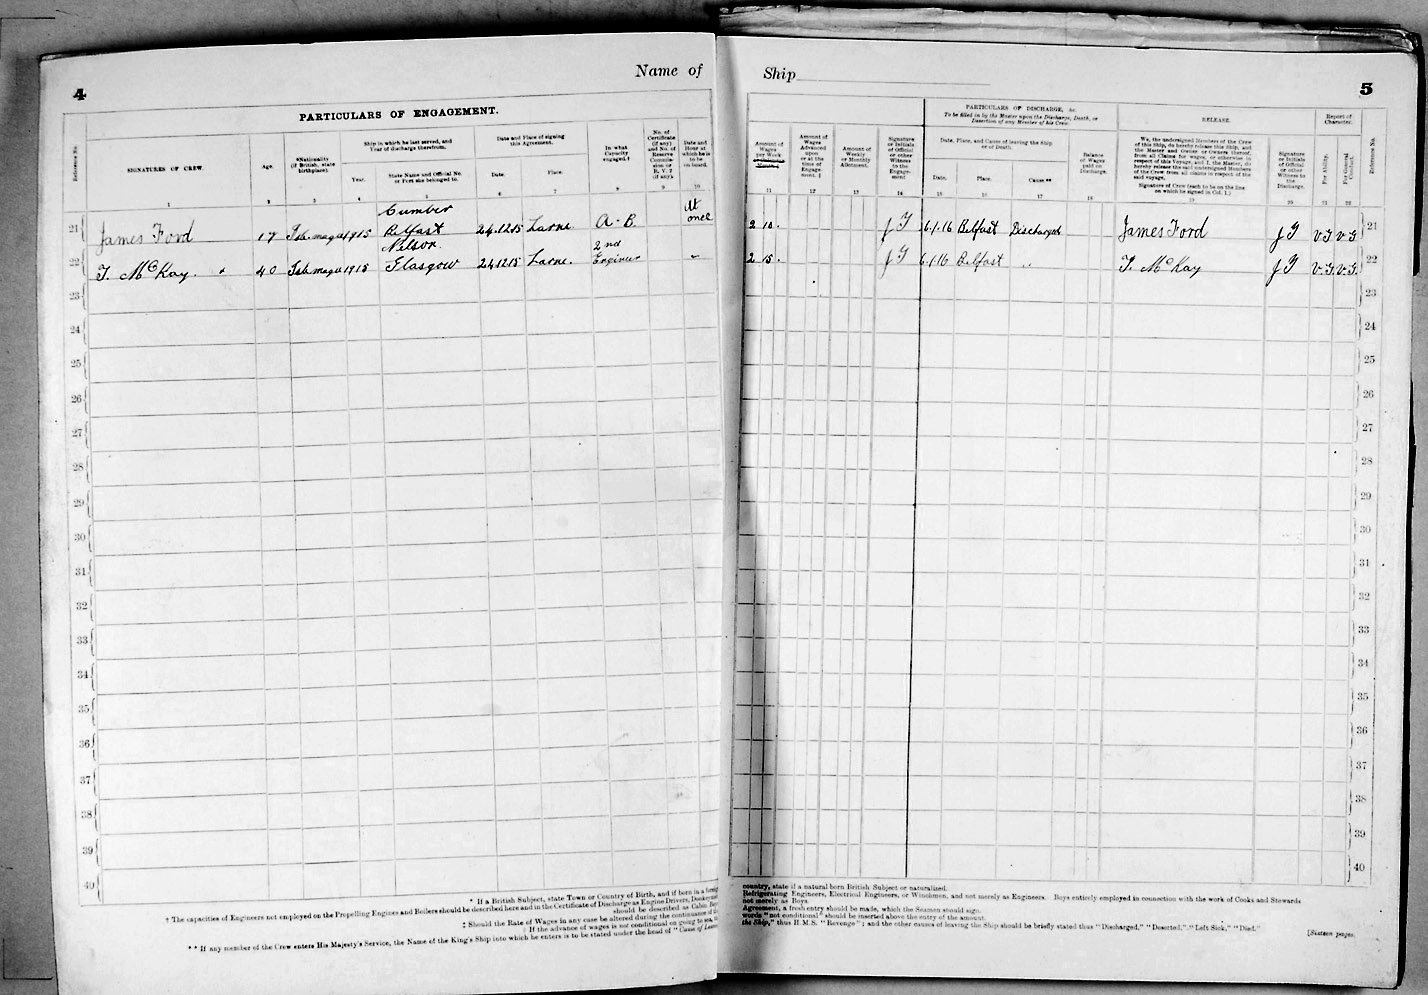 4
Name of
PARTICULARS OF ENGAGEMENT.
Reference No.
SIGNATURES OF CREW.
Age.
*Nationality
(if British, state
birthplace).
Ship in which he last served, and
Year of discharge therefrom.
Year.
State Name and Official No.
or Port she belonged to.
Date and Place of signing
this Agreement.
Date.
Place.
In what
Capacity
engaged.†
No. of
Certificate
(if any)
and No. of
Reserve
Commis-
sion or
R. V. 2
(if any).
Date and
Hour at
which he is
to be
on board.
1 2 3 4 5 6 7 8 9 10
21 James Ford 17 Islemagee 1915 Cumber Belfast 24.12.15 Larne A.B. At once
22 T. McKay. 40 Islemagee 1915 Nelson. Glasgow 24.12.15 Larne. 2nd Engineer "
23
24
25
26
27
28
29
30
31
32
33
34
35
36
37
38
39
40
* If a British Subject, state Town or Country of Birth, and if born in a foreign
† The capacities of Engineers not employed on the Propelling Engines and Boilers should be described here and in the Certificate of Discharge as Engine Drivers, Donkeymen
should be described as Cabin Boys
‡ Should the Rate of Wages in any case be altered during the continuance of the
If the advance of wages is not conditional on going to sea,
** If any member of the Crew enters His Majesty's Service, the Name of the King's Ship into which he enters is to be stated under the head of "Cause of Leaving
Ship
5
Amount of
Wages
per Week
Amount of
Wages
Advanced
upon
or at the
time of
Engage-
ment. ‡
Amount of
Weekly
or Monthly
Allotment.
Signature
or Initials
of Official
or other
Witness
to the
Engage-
ment
PARTICULARS OF DISCHARGE, &c.
To be filled in by the Master upon the Discharge, Death, or
Desertion of any Member of his Crew.
Date, Place, and Cause of leaving the Ship
or of Death.
Date.
Place.
Cause **
Balance
of Wages
paid on
Discharge.
RELEASE.
We, the undersigned Members of the Crew
of this Ship, do hereby release this Ship, and
the Master and Owner or Owners thereof,
from all Claims for wages, or otherwise in
respect of this Voyage, and I, the Master, do
hereby release the said undersigned Members
of the Crew from all claims in respect of the
said voyage.
Signature of Crew (each to be on the line
on which he signed in Col. 1.)
Signature
or Initials
of Official
or other
Witness to
the
Discharge.
Report of
Character.
For Ability.
For General
Conduct.
Reference No.
11 12 13 14 15 16 17 18 19 20 21 22
2 10. 6.1.16 Belfast Discharged James Ford V.G V.G 21
2 15. 6.1.16 Belfast " T. McKay V.G. V.G. 22
23
24
25
26
27
28
29
30
31
32
33
34
35
36
37
38
39
40
country, state if a natural born British Subject or naturalized.
Refrigerating Engineers, Electrical Engineers, or Winchmen, and not merely as Engineers. Boys entirely employed in connection with the work of Cooks and Stewards
not merely as Boys.
Agreement, a fresh entry should be made, which the Seamen should sign.
words "not conditional" should be inserted above the entry of the amount.
the Ship," thus H.M.S. "Revenge"; and the other causes of leaving the Ship should be briefly stated thus "Discharged," "Deserted," "Left Sick," "Died."
[Sixteen pages.